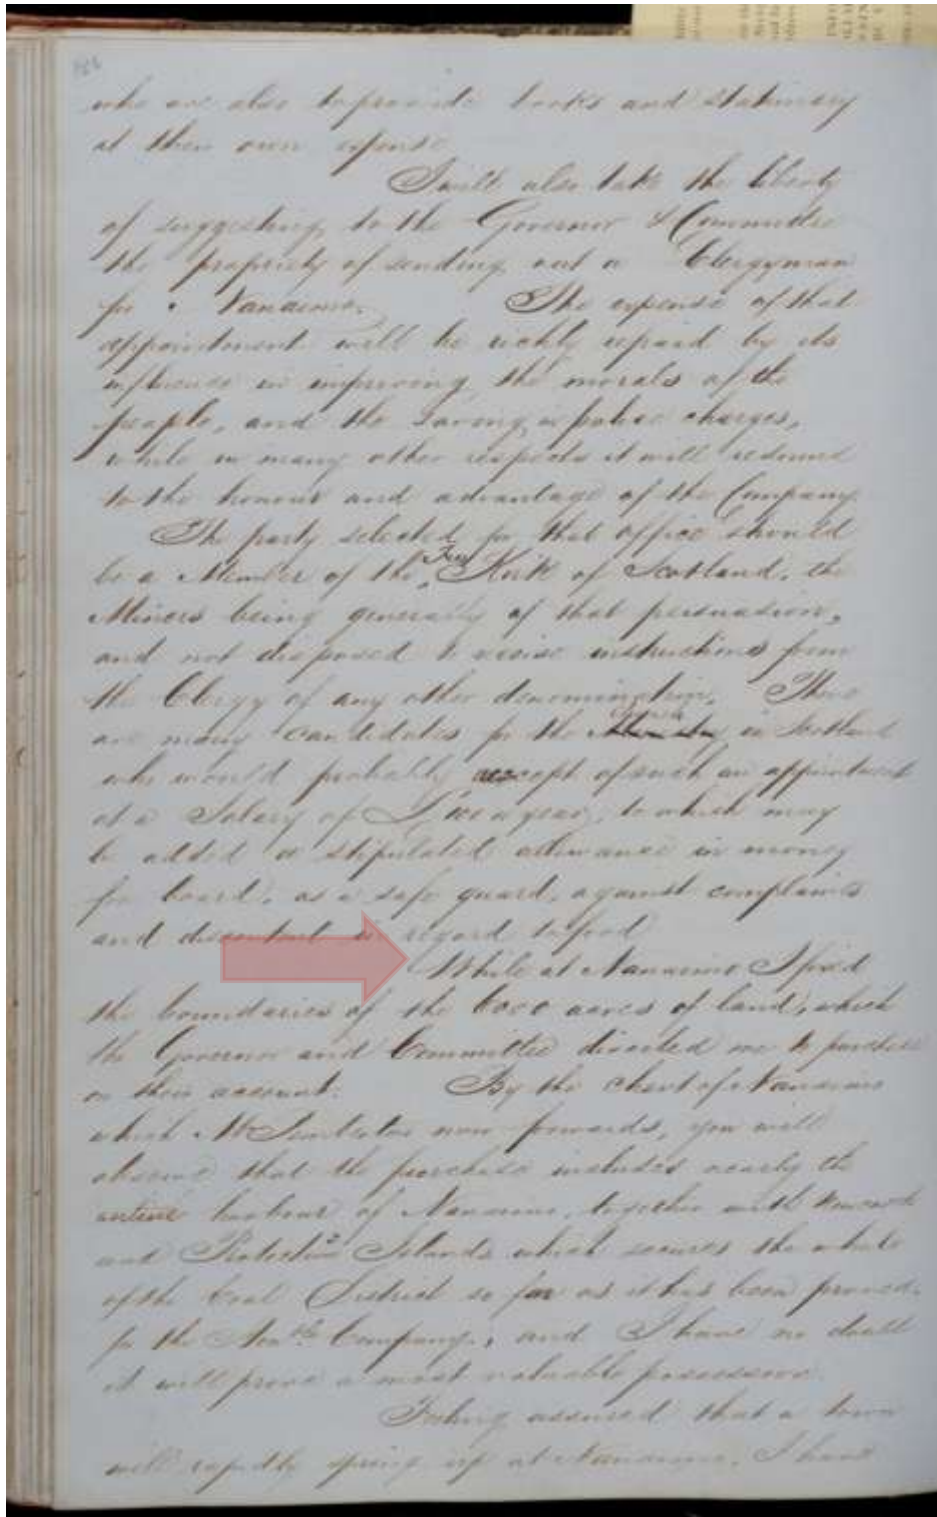 who are also to provide books and stationery
at their own expense
I will also take the liberty
of suggesting to the Governor & Committee
the propriety of sending out a Clergyman
for Nanaimo. The expense of that
appointment will be richly repaid by its
influence in improving the morals of the
people, and the saving in police charges,
while in many other respects it will redound
to the honour and advantage of the Company
The party selected for that office should
be a Member of the Free Kirk of Scotland, the
Miners being generally of that persuasion,
and not disposed to receive instructions from
the Clergy of any other denomination. There
are many candidates for the in Scotland
who would probably accept of such an appointment
at a Salary of a year, to which may
be added a stipulated allowance in money
for board, as a safe guard, against complaints
and discontent in regard to food
While at Nanaimo I fixed
the boundaries of the 6000 acres of land, which
the Governor and Committee directed me to purchase
on their account. By the chart of Nanaimo
which Mr Pemberton now forwards, you will
observe that the purchase includes nearly the
entire harbour of Nanaimo, together with Newcastle
and Protection Islands which secures the whole
of the Coal District so far as it has been proved,
for the Honble Company, and I have no doubt
it will prove a most valuable possession
Feeling assured that a town
will rapidly spring up at Nanaimo, I have